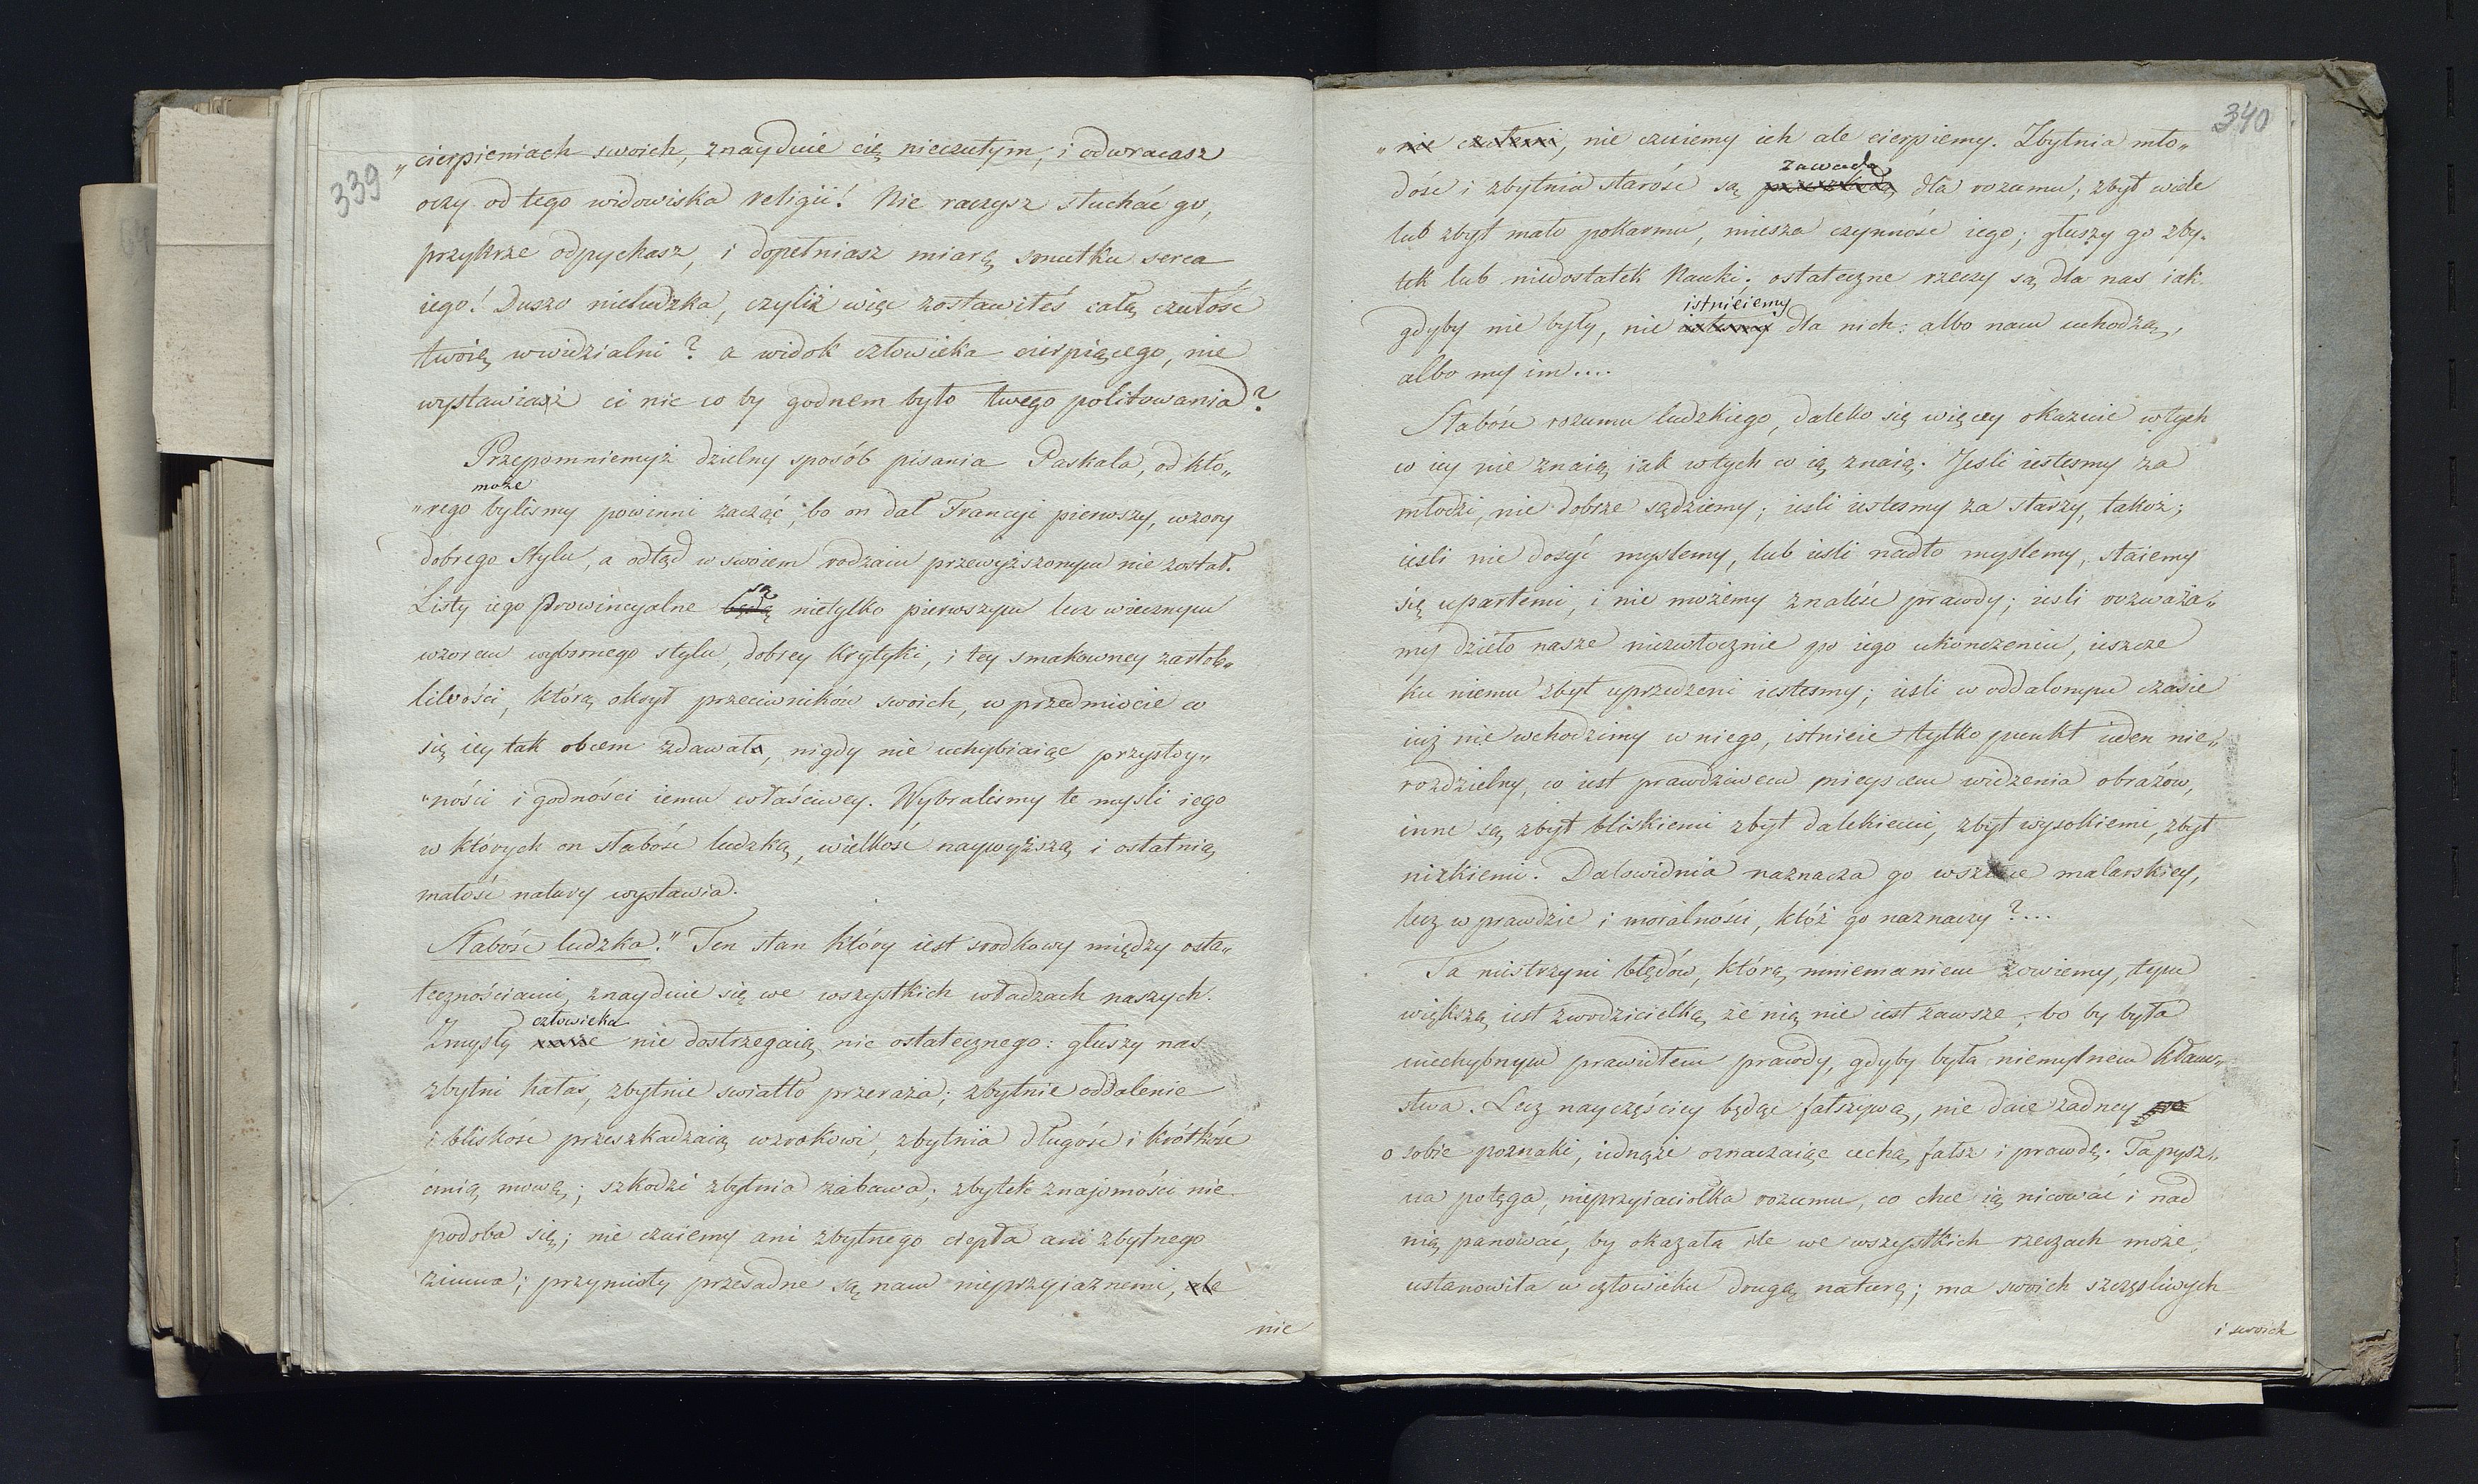 339
„cierpieniach swoich, znayduie cię nieczułym, i odwracasz
oczy od tego widowiska religii! Nie raczysz słuchać go,
przykrze odpychasz, i dopełniasz miarę smutku serca
iego! Duszo nieludzka, czyliż więc zostawiłeś całą czułość
twoię wwidzialni? a widok człowieka cierpiącego, nie
wystawiaż ci nic co by godnem było twego politowania?
Przepomniemyż dzielny sposób pisania Paskala, od któ„
może
„rego bylismy powinni zacząć, bo on dał Francyi pierwszy, wzory
dobrego stylu, a odtąd w swoiem rodzaiu przewyższonym nie został.
są
Listy iego Prowincyalne będą nietylko pierwszym lecz wiecznym
wzorem wybornego stylu, dobrey Krytyki, i tey smakowney żartob„
liwości, którą okrył przeciwników swoich, w przedmiocie co
się iey tak obcem zdawał, nigdy nie uchybiaiąc przystoy„
„ności i godności iemu właściwey. Wybralismy te mysli iego
w których on słabość ludzką, wielkość naywyższą i ostatnią
małość natury wystawia.
Słabość ludzka." Ten stan który iest srodkowy między osta„
tecznościami, znayduie się we wszystkich władzach naszych.
człowieka
Zmysły nasze nie dostrzegaią nic ostatecznego: głuszy nas
zbytni hałas, zbytnie swiatło przeraża; zbytnie oddalenie
i bliskość przeszkadzaią wzrokowi, zbytnia długość i krótkość
ćmią mowę; szkodzi zbytnia zabawa; zbytek znajomości nie
podoba się; nie czuiemy ani zbytnego ciepła ani zbytnego
zimna; przymioty przesadne są nam nieprzyiaznemi, ale
nie
340
„nie czułemi, nie czuiemy ich ale cierpiemy. Zbytnia mło„
zawadą
dość i zbytnia starość są przeszkodą dla rozumu; zbyt wiele
lub zbyt mało pokarmu, miesza czynność iego; głuszy go zby„
tek lub niedostatek Nauki; ostateczne rzeczy są dla nas iak
istnieiemy
gdyby nie były, nie dla nich: albo nam uchodzą,
albo my im....
Słabość rozumu ludzkiego, daleko się więcey okazuie wtych
co iey nie znaią iak wtych co ią znaią. Jesli iestesmy za
młodzi, nie dobrze sądziemy; iesli iestesmy za starzy, takoż;
iesli nie dosyć myslemy, lub iesli nadto myslemy, staiemy
się upartemi, i nie możemy znaleść prawdy; iesli rozważa„
my dzieło nasze niezwłocznie po iego ukończeniu, ieszcze
ku niemu zbyt uprzedzeni iestesmy; iesli w oddalonym czasie
iuż nie wchodzimy w niego, istnieie tylko punkt ieden nie„
rozdzielny, co iest prawdziwem mieyscem widzenia obrazów,
inne są zbyt bliskiemi zbyt dalekiemi, zbyt wysokiemi, zbyt
nizkiemi. Dalowidnia naznacza go wsztuce malarskiey,
lecz w prawdzie i moralności, któż go naznaczy?...
Ta mistrzyni błędów, którą mniemaniem zowiemy, tym
większą iest zwodzicielką że nią nie iest zawsze; bo by była
niechybnym prawidłem prawdy, gdyby była niemylnem kłam„
stwa. Lecz nayczęściey będąc fałszywą, nie daie żadney po
o sobie poznaki, iednąż oznaczaiąc cechą fałsz i prawdę. Ta pysz„
na potęga, nieprzyiaciołka rozumu, co chce ią nicować i nad
nią panować, by okazała ile we wszystkich rzeczach może,
ustanowiła w człowieku drugą naturę; ma swoich szczęśliwych
i swoich